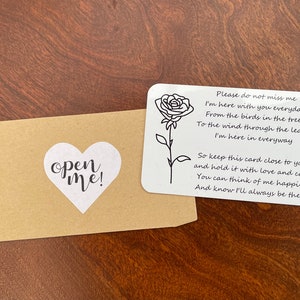 open
me!
Please do not miss me
I'm here with you everyday
From the birds in the tree
To the wind through the le
I'm here in everyway
So keep this card close to yo
and hold it with love and c
You can think of me happi
And know I'll always be the